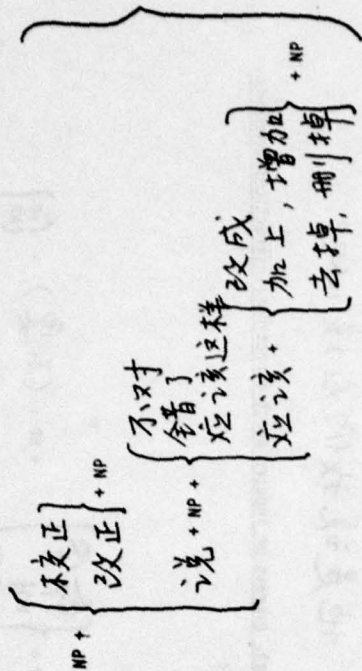 校正
改正 + NP
NP +
说 + NP +
不对
错了
应该这样
应该 +
改成
加上，增加
去掉，删掉
+ NP